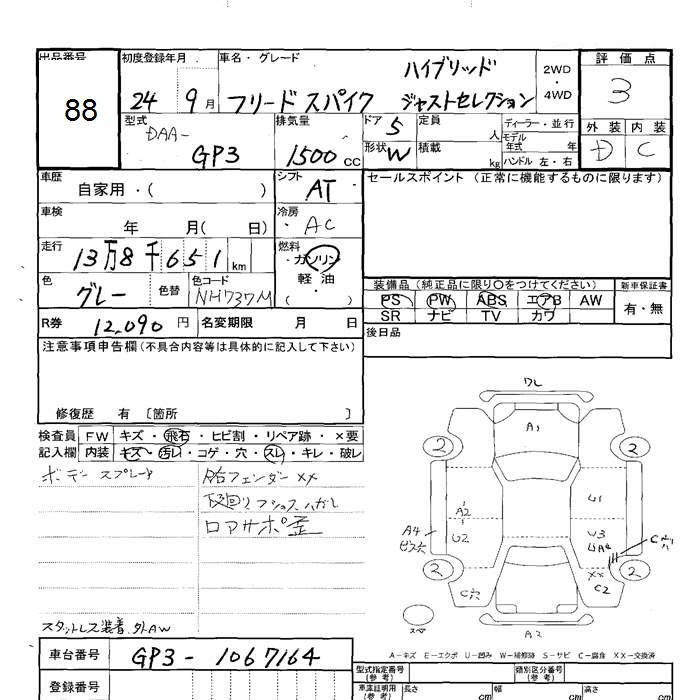 出品番号 88
初度登録年月 24 9月
車名・グレード ハイブリッド
フリード スパイク ジャストセレクション
2WD ・ 4WD
評価点 3
外装 内装
D C
型式 DAA-
GP3
排気量 1500cc
ドア 5 定員 人
形状 W 積載 kg
ディーラー・並行
モデル年式 年
ハンドル 左・右
車歴 自家用・( )
シフト AT
セールスポイント (正常に機能するものに限ります)
車検 年 月( 日)
冷房 ・AC
走行 13万8千651km
燃料 ・ガソリン 軽油 ・( )
色 グレー 色替 色コード NH737M
装備品 (純正品に限り○をつけてください)
PS PW ABS エアB AW
SR ナビ TV カワ
新車保証書 有・無
R券 12,090円 名変期限 月 日
後日品
注意事項申告欄(不具合内容等は具体的に記入して下さい)
修復歴 有 〔箇所 〕
検査員 FW キズ・飛石・ヒビ割・リペア跡・×要
記入欄 内装 キズ・汚レ・コゲ・穴・スレ・キレ・破レ
ボデー スプレー
右フェンダー ××
下回り ハガレ
ロアサポ歪
スタットレス装着 外AW
ワレ
A1
2 2
A2 U1
A4 U2 U3
ビス穴
2 2
C穴 ×× C2
スペア
A3
A-キズ E-エクボ U-凹み W-補修跡 S-サビ C-腐食 XX-交換済
車台番号 GP3-1067164
登録番号
型式指定番号(参考) 類別区分番号(参考)
車庫証明用(参考) 長さ cm 幅 cm 高さ cm